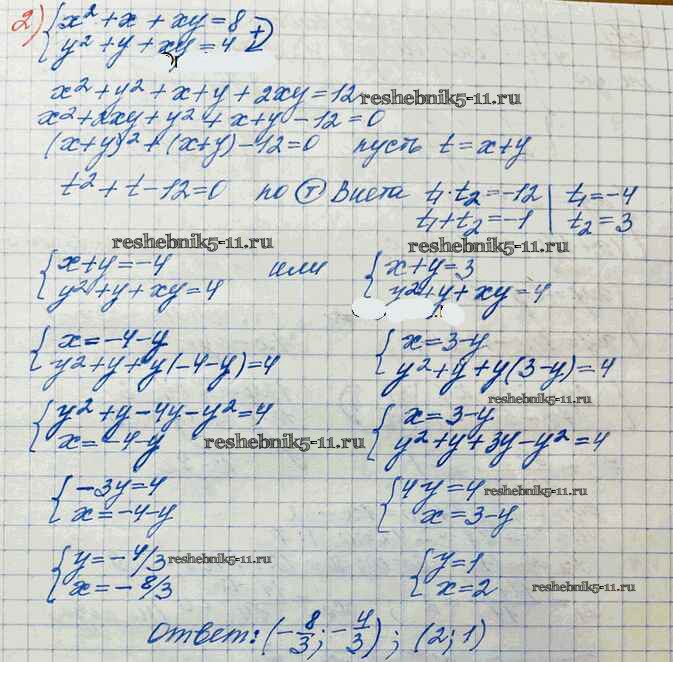 2) { x² + x + xy = 8
{ y² + y + xy = 4 (+)
x² + y² + x + y + 2xy = 12 reshebnik5-11.ru
x² + 2xy + y² + x + y - 12 = 0
(x+y)² + (x+y) - 12 = 0 пусть t = x+y
t² + t - 12 = 0 по (т) Виета t₁·t₂ = -12 | t₁ = -4
t₁ + t₂ = -1 | t₂ = 3
reshebnik5-11.ru reshebnik5-11.ru
{ x + y = -4 или { x + y = 3
{ y² + y + xy = 4 { y² + y + xy = 4
{ x = -4 - y { x = 3 - y
{ y² + y + y(-4-y) = 4 { y² + y + y(3-y) = 4
reshebnik5-11.ru
{ y² + y - 4y - y² = 4 { x = 3 - y
{ x = -4 - y reshebnik5-11.ru { y² + y + 3y - y² = 4
{ -3y = 4 { 4y = 4 reshebnik5-11.ru
{ x = -4 - y { x = 3 - y
{ y = -4/3 reshebnik5-11.ru { y = 1
{ x = -8/3 { x = 2 reshebnik5-11.ru
Ответ: (-8/3; -4/3); (2; 1)